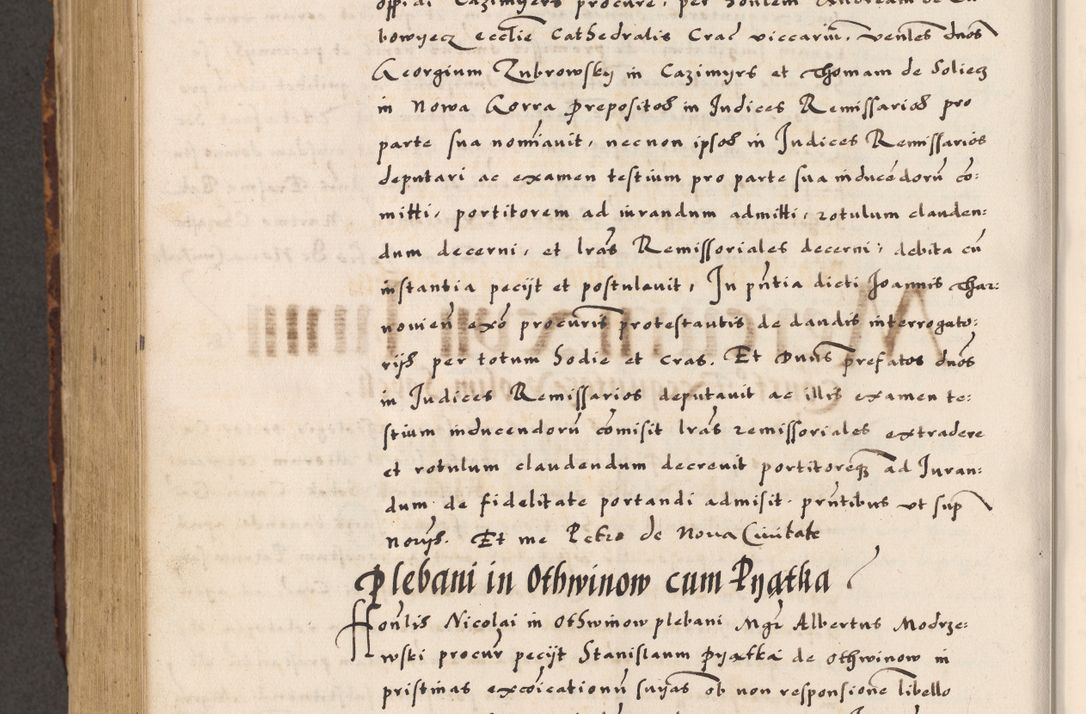 officii Cazimyers procure, per
bowyecz ecclie Cathedralis Crac viccariū, venles dnos
Georgium Zubrowsky in Cazimyrs et Thomam de Soliecz
in Nowa Gorra prepositos in Iudices Remissarios pro
parte sua nomiauit, necnon ipsos in Iudices Remissarios
deputari ac examen testium pro parte sua inducēdorū cō:
mitti, portitorem ad iurandum admitti, rotulum clauden:
dum decerni, et lras Remissoriales decerni, debita cū
instantia pecijt et postulauit, In pntia dicti Joannis Thar:
novien exō procuris protestantis de dandis interrogato:
rijs per totum hodie et cras. Et Dnus prefatos dnos
in Iudices Remissarios deputauit ac illis examen te:
stium inducendorū cōmisit lras remissoriales extradere
et rotulum claudendum decreuit portitoreqz ad Iuran:
dum de fidelitate portandi admisit. pntibus vt sup
norys. Et me Petro de Nova Ciuitate
Plebani in Othwinow cum Pyatka
Honlis Nicolai in Othwinow plebani Mgr Albertus Modrze:
wski procur pecijt Stanislaum Pyatka de Othwinow in
pristinas excōicationū suyas ob non responsione libello